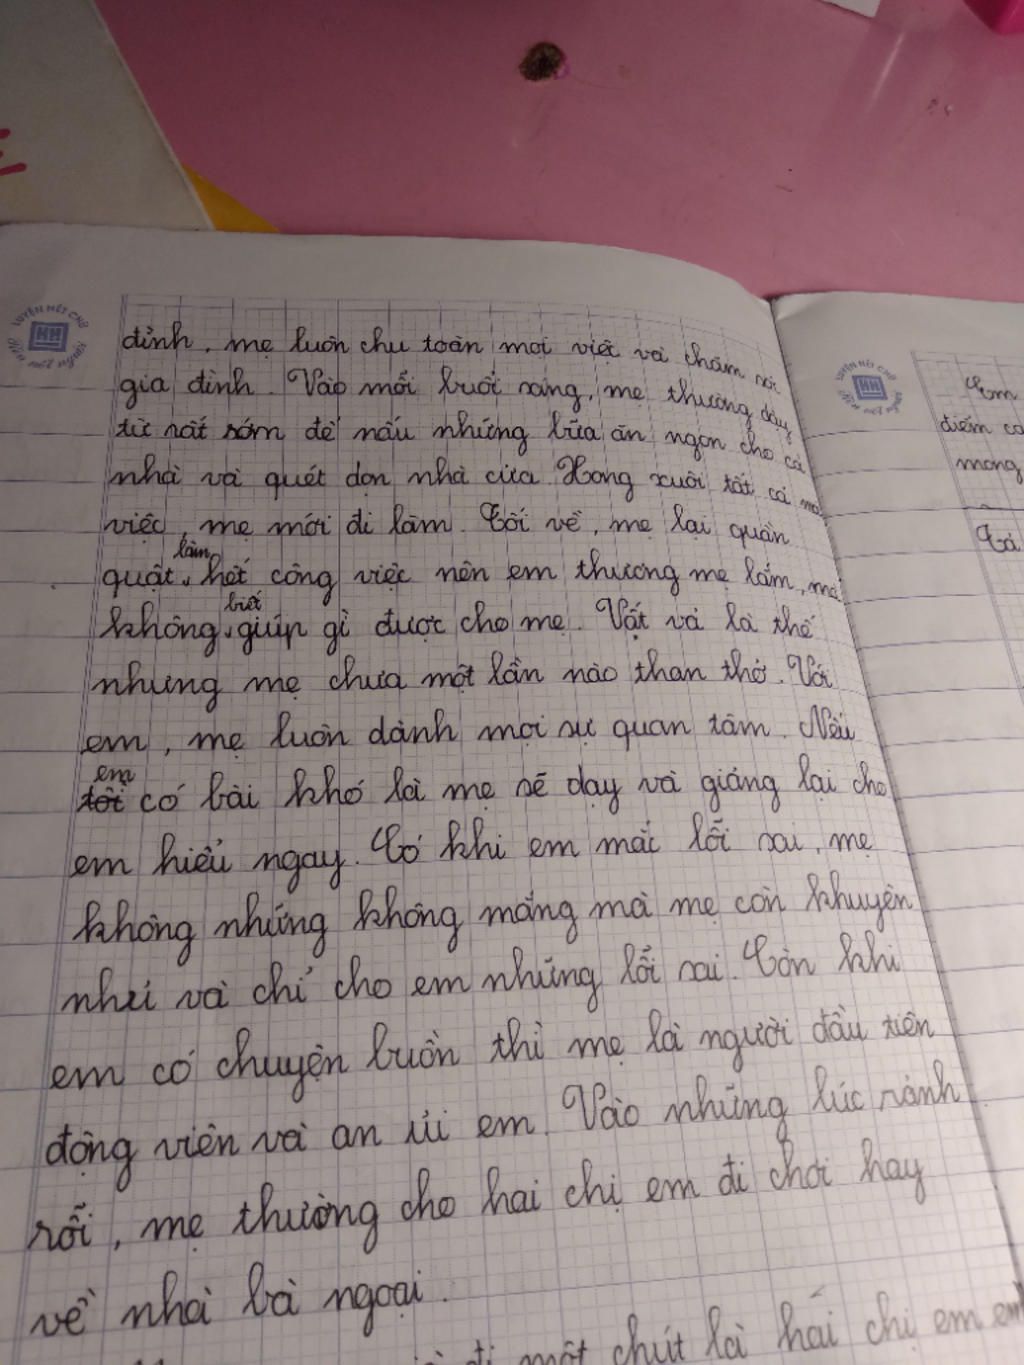 đình, mẹ luôn chu toàn mọi việc và chăm sóc
gia đình. Vào mỗi buổi sáng, mẹ thường dậy
từ rất sớm để nấu những bữa ăn ngon cho cả
nhà và quét dọn nhà cửa. Xong xuôi tất cả mọi
việc, mẹ mới đi làm. Tối về, mẹ lại quần
làm
quật hết công việc nên em thương mẹ lắm, mà
biết
không giúp gì được cho mẹ. Vất vả là thế
nhưng mẹ chưa một lần nào than thở. Với
em, mẹ luôn dành mọi sự quan tâm. Nếu
em
có bài khó là mẹ sẽ dạy và giảng lại cho
em hiểu ngay. Có khi em mắc lỗi sai, mẹ
không những không mắng mà mẹ còn khuyên
nhủ và chỉ cho em những lỗi sai. Còn khi
em có chuyện buồn thì mẹ là người đầu tiên
động viên và an ủi em. Vào những lúc rảnh
rỗi, mẹ thường cho hai chị em đi chơi hay
về nhà bà ngoại.
đi một chút là hai chị em em
LUYỆN NÉT CHỮ
HH
LUYỆN NÉT CHỮ
HH
Em
điểm cao
mong
Tả